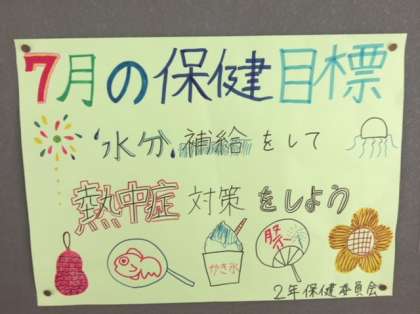 7月の保健目標
水分補給をして
熱中症対策をしよう
かき氷
祭
2年保健委員会